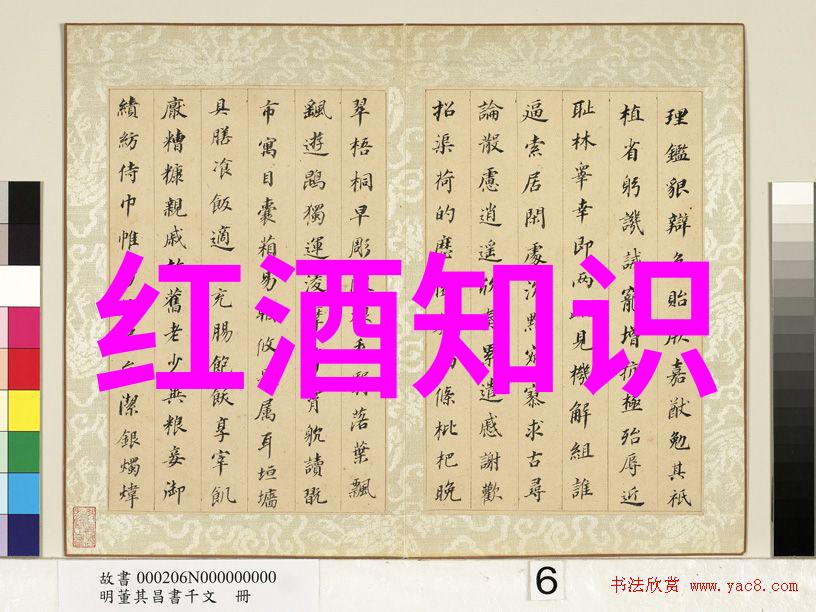 理鑑貌辯色貽厥嘉猷勉其祇
植省躬譏誡寵增抗極殆辱近
耻林睪幸即兩見機解組誰
逼索居閑處沉默寂寥求古尋
論散慮逍遙欣奏累遣慼謝歡
招渠荷的歷條枇杷晚
翠梧桐早彫委翳落葉飄
飖遊鵾獨運凌摩霄躭讀翫
市寓目囊箱易輶攸畏属耳垣墻
具膳飡飯適充腸飽飫享宰飢
厭糟糠親戚故舊老少異粮妾御
績紡侍巾帷潔銀燭煒
红酒知识
故書 000206N000000000
明董其昌書千文 冊
6
书法欣赏 www.yac8.com